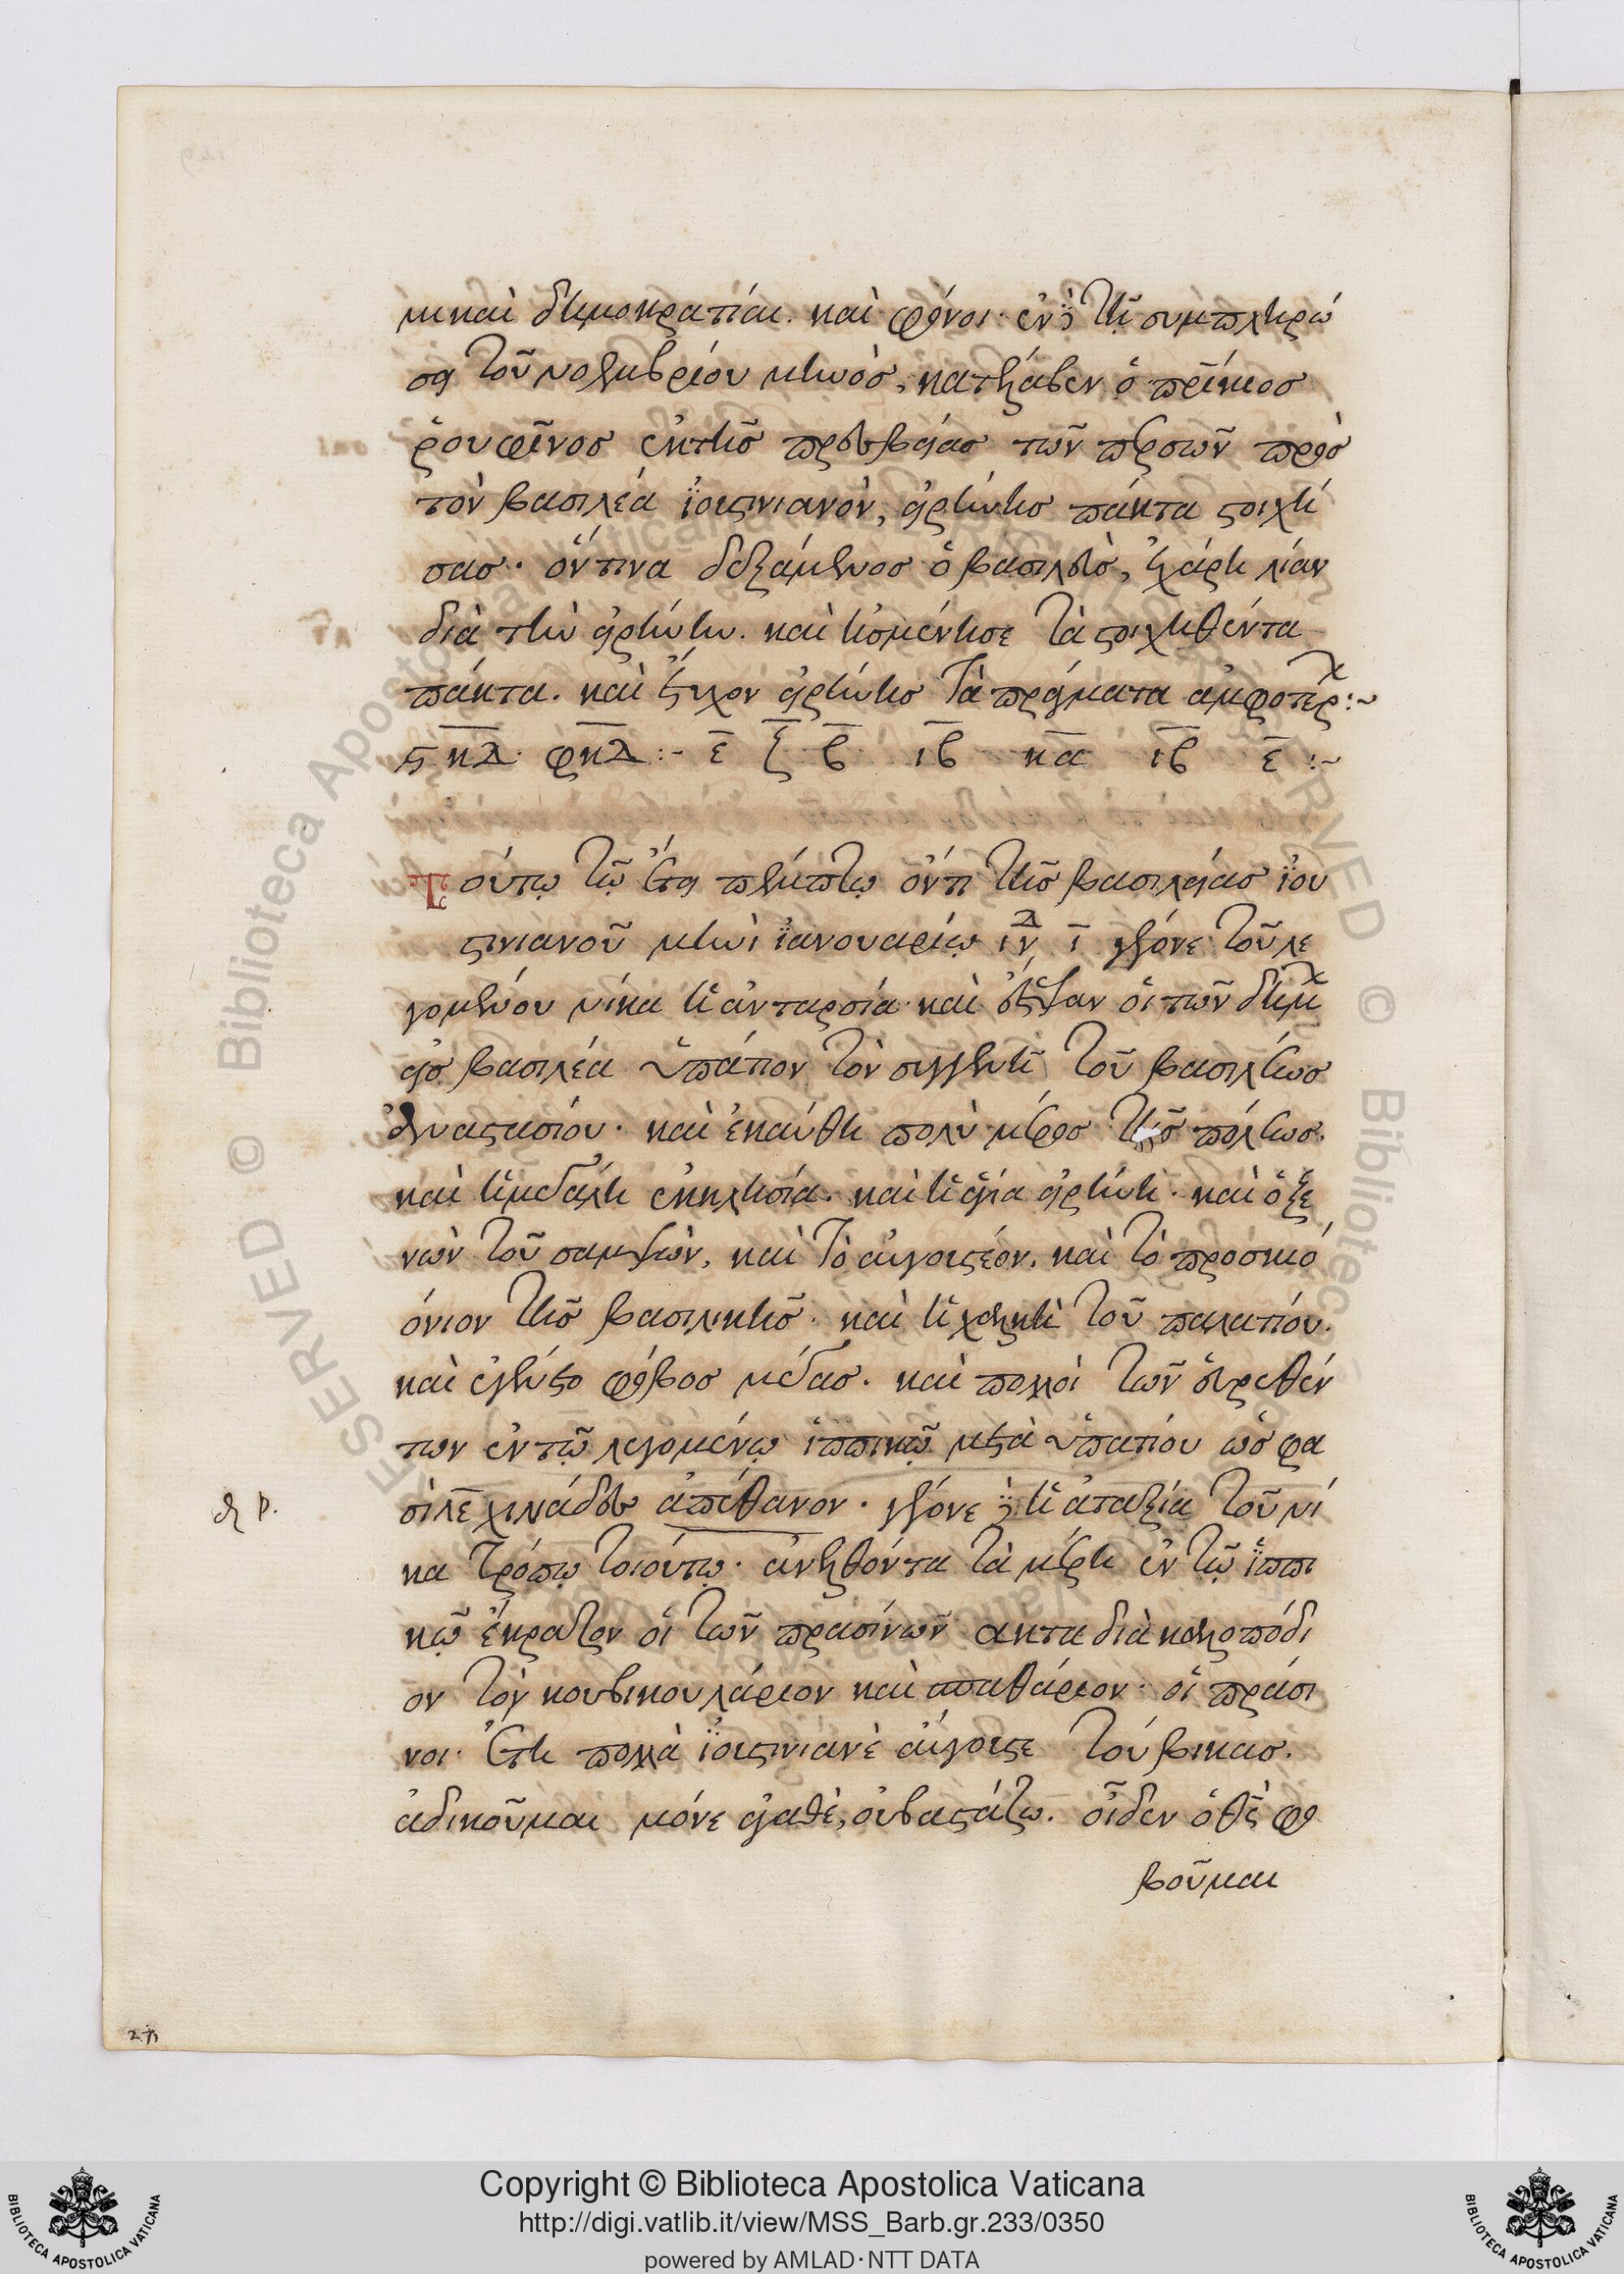 μικαὶ δημοκρατίαι. καὶ φόνοι· ἐν δὲ τῇ συμπληρώ
σει τοῦ νοεμβρίου μηνὸς, κατέλαβεν ὁ πατρίκιος
ῥουφῖνος ἐκ τῆς πρεσβείας τῶν περσῶν πρὸς
τὸν βασιλέα ἰουστινιανὸν, εἰρήνης πάκτα στοιχή
σας· ὅντινα δεξάμενος ὁ βασιλεὺς, ἐχάρη λίαν
διὰ τὴν εἰρήνην. καὶ ἠσμένησε τὰ στοιχηθέντα
πάκτα. καὶ ἔσχον εἰρήνης τὰ πράγματα ἀμφοτερ :~
ς κδ φκδ :- ε ζ β ιβ κα ιβ ε :~
Τούτῳ τῷ ἔτει πέμπτῳ ὄντι τῆς βασιλείας ἰου
στινιανοῦ μηνὶ ἰανουαρίῳ ἰνδ ι γέγονε τοῦ λε
γομένου νίκα ἡ ἀνταρσία· καὶ ἔστεψαν οἱ τῶν δημ
εἰς βασιλέα ὑπάτιον τὸν συγγενῆ τοῦ βασιλέως
ἀναστασίου· καὶ ἐκαύθη πολὺ μέρος τῆς πόλεως.
καὶ ἡ μεγάλη ἐκκλησία. καὶ ἡ ἁγία εἰρήνη. καὶ ὁ ξε
νὼν τοῦ σαμψὼν, καὶ τὸ αὐγουστέον. καὶ τὸ προσκιό
όνιον τῆς βασιλικῆς· καὶ ἡ χαλκὴ τοῦ παλατίου.
καὶ ἐγένετο φόβος μέγας. καὶ πολλοὶ τῶν εὑρεθέν
των ἐν τῷ λεγομένῳ ἱππικῷ μετὰ ὑπατίου ὡς φα
σὶ λε χιλιάδες ἀπέθανον. γέγονε δὲ ἡ ἀταξία τοῦ νί
κα τρόπῳ τοιούτῳ· ἀνελθόντα τὰ μέρη ἐν τῷ ἱππι
κῷ ἔκραζον οἱ τῶν πρασίνων ακτα διὰ καλοπόδι
ον τὸν κουβικουλάριον καὶ σπαθάριον· οἱ πράσι
νοι· ἔτη πολλὰ ἰουστινιανὲ αὔγουστε τούβικας.
ἀδικοῦμαι μόνε ἀγαθὲ, οὐ βαστάζω. οἶδεν ὁ θς φο
βοῦμαι